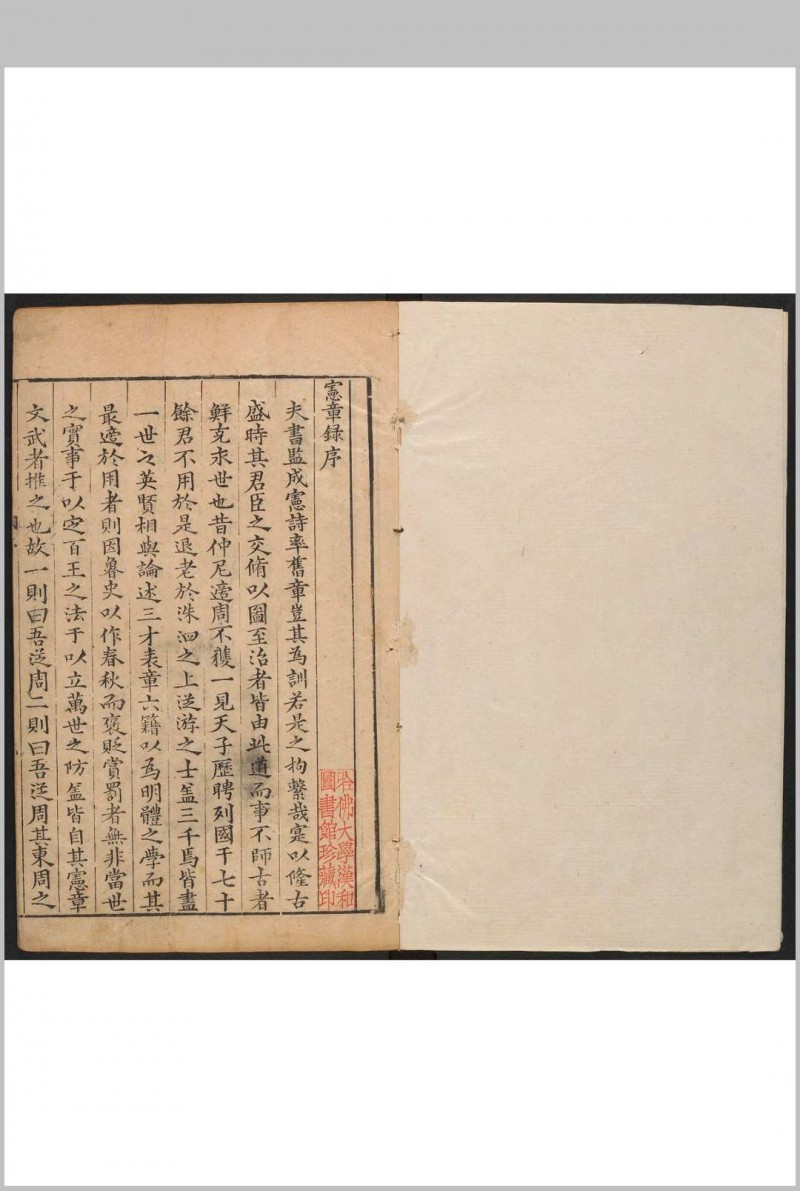 憲章録序
夫書監成憲詩率舊章豈其為訓若是之拘繫哉寔以隆古
盛時其君臣之交脩以圖至治者皆由此道而事不師古者
鮮克永世也昔仲尼適周不獲一見天子歷聘列國干七十
餘君不用於是退老於洙泗之上從游之士盖三千焉皆盡
一世之英賢相與論述三才表章六籍以為明體之學而其
最適於用者則因魯史以作春秋而褒貶賞罰者無非當世
之實事于以定百王之法于以立萬世之防盖皆自其憲章
文武者推之也故一則曰吾從周二則曰吾從周其東周之
哈佛大學漢和
圖書館珍藏印